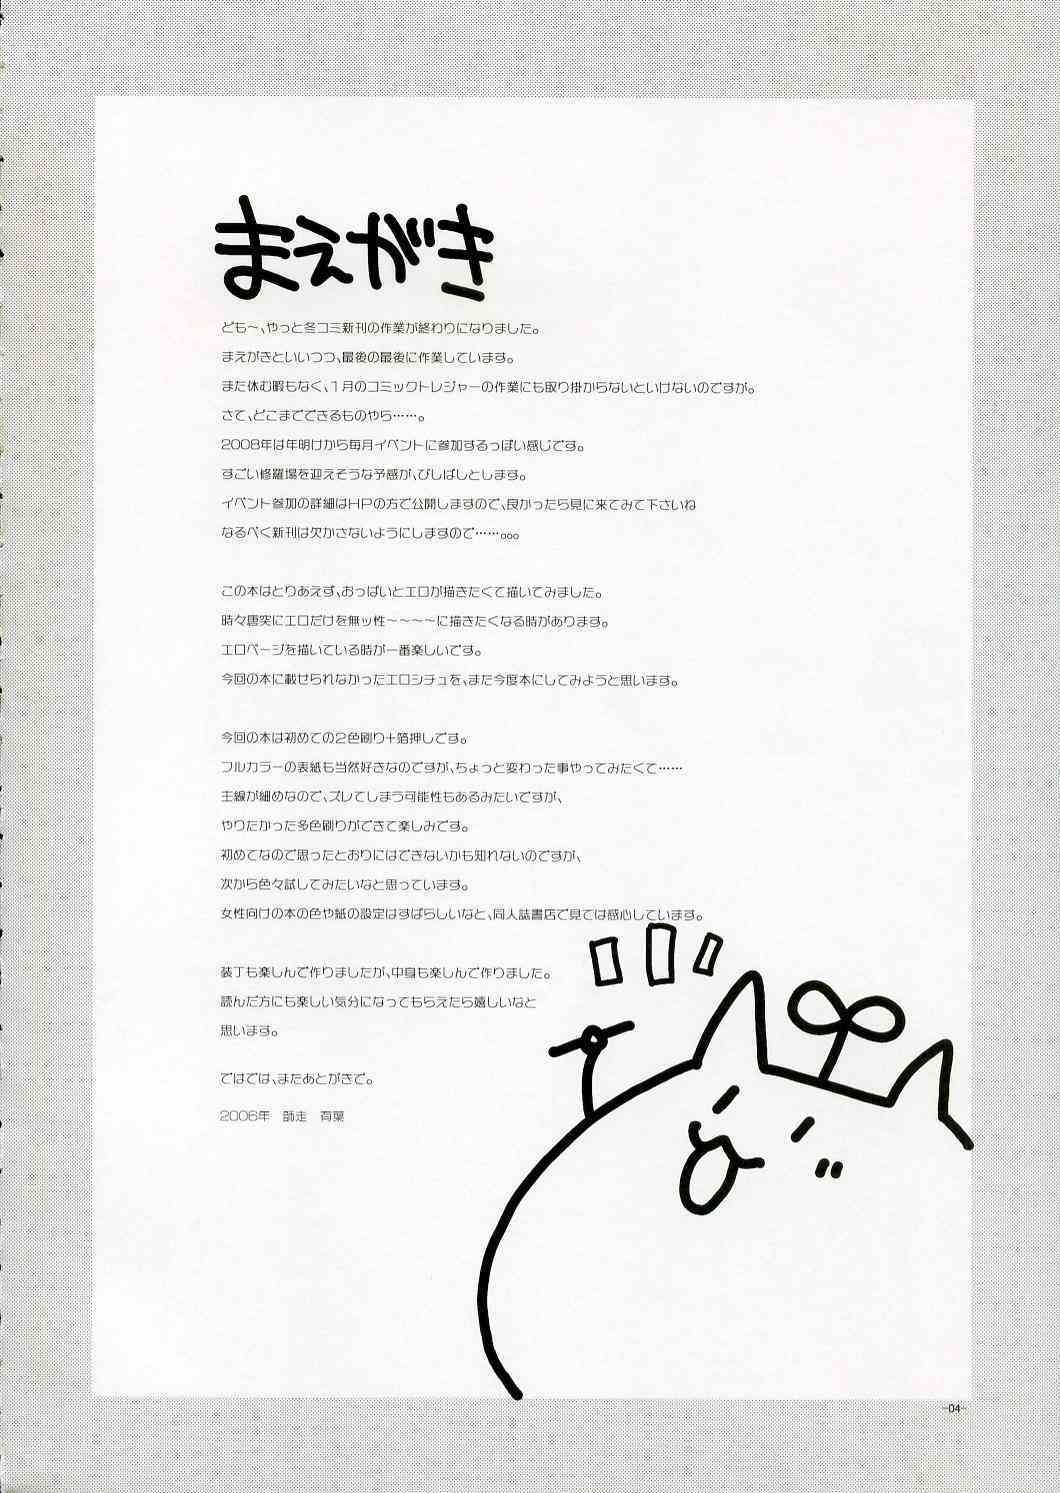 まえがき
ども～、やっと冬コミ新刊の作業が終わりになりました。
まえがきといいつつ、最後の最後に作業しています。
また休む暇もなく、1月のコミックトレジャーの作業にも取り掛からないといけないのですが。
さて、どこまでできるものやら……。
2008年は年明けから毎月イベントに参加するっぽい感じです。
すごい修羅場を迎えそうな予感が、びしばしとします。
イベント参加の詳細はHPの方で公開しますので、良かったら見に来てみて下さいね
なるべく新刊は欠かさないようにしますので……。。。
この本はとりあえず、おっぱいとエロが描きたくて描いてみました。
時々唐突にエロだけを無ッ性～～～～に描きたくなる時があります。
エロページを描いている時が一番楽しいです。
今回の本に載せられなかったエロシチュを、また今度本にしてみようと思います。
今回の本は初めての2色刷り+箔押しです。
フルカラーの表紙も当然好きなのですが、ちょっと変わった事やってみたくて……
主線が細めなので、ズレてしまう可能性もあるみたいですが、
やりたかった多色刷りができて楽しみです。
初めてなので思ったとおりにはできないかも知れないのですが、
次から色々試してみたいなと思っています。
女性向けの本の色や紙の設定はすばらしいなと、同人誌書店で見ては感心しています。
装丁も楽しんで作りましたが、中身も楽しんで作りました。
読んだ方にも楽しい気分になってもらえたら嬉しいなと
思います。
ではでは、またあとがきで。
2006年 師走 有葉
-04-